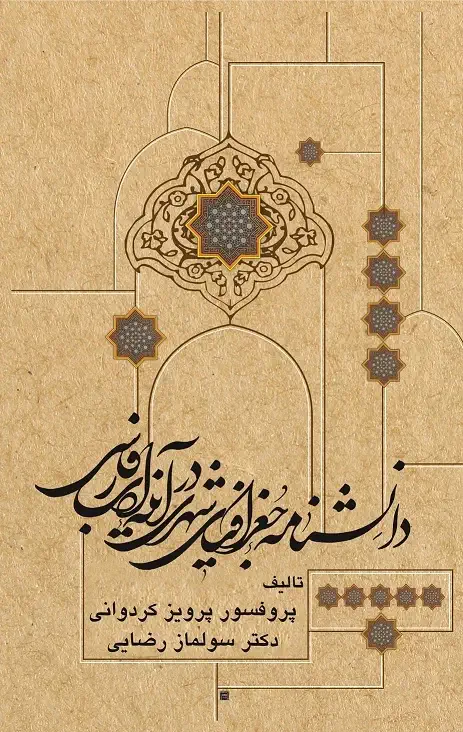 دانشنامه جغرافیای شهری در آینه ادب فارسی
تالیف
پروفسور پرویز کردوانی
دکتر سولماز رضایی